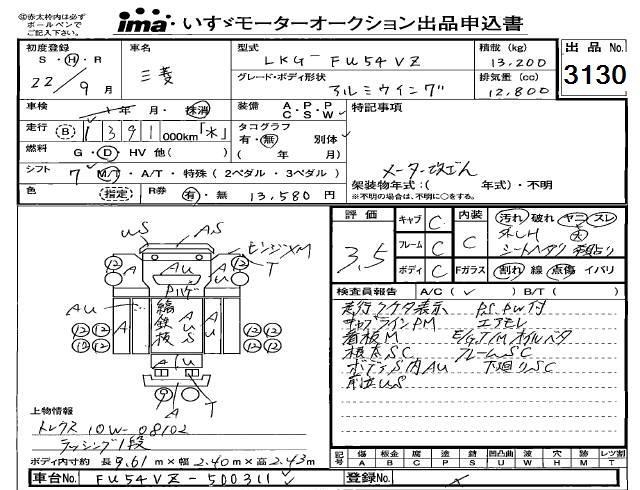 ◎赤太枠内は必ず
ボールペンで
ご記入下さい。
ima いすゞモーターオークション出品申込書
初度登録
S・H・R
22/9月
車名
三菱
型式
LKG-FU54VZ
積載 (kg)
13,200
出品No.
3130
グレード・ボディ形状
アルミウイング
排気量 (cc)
12,800
車検
年 月・抹消
装備 A・P・P
C・S・W
特記事項
走行 B 1391000km「水」
タコグラフ
有・無 別体
( 年 月)
燃料 G・D・HV 他( )
メーター改ざん
シフト 7 M/T・A/T・特殊(2ペダル・3ペダル)
架装物年式:( 年式)・不明
※不明の場合は、不明に○をする。
色 (指定) R券 有・無 13,580円
評価 3.5
キャブ C
フレーム C
ボディ C
内装 C
汚れ 破れ ヤニ スレ
シートヘタリ
Fガラス 割れ 線 点傷 イバリ
検査員報告 A/C(✓) B/T( )
PS PW付
キャブラインPM エアサス
看板M E/G,T/Mオイルベタ
根太SC フレームSC
ボディS内AU 下廻りSC
US AS
エンジンXM
T
AU
Pハゲ
縞鉄板
上物情報
トレクス 10W-08102
ラッシング1段
ボディ内寸約 長9.61m×幅2.40m×高2.43m
記号 傷 板金 腐 塗 錆 凹凸曲 波 穴 跡 レツ割
A B C P S U W H M T
車台No. FU54VZ-500311
登録No.